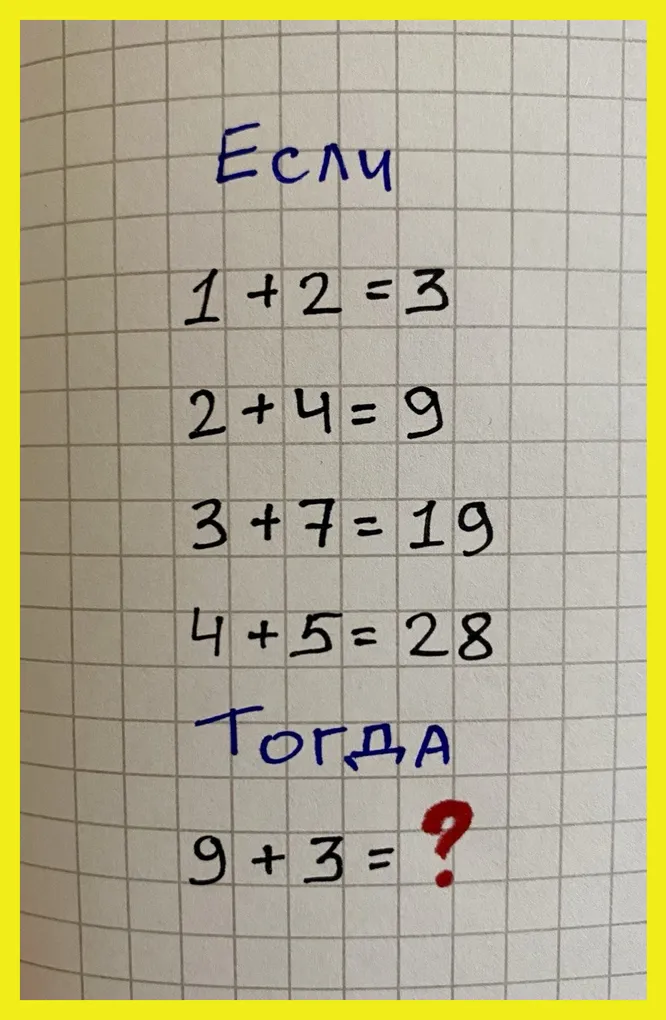 Если
1 + 2 = 3
2 + 4 = 9
3 + 7 = 19
4 + 5 = 28
Тогда
9 + 3 = ?